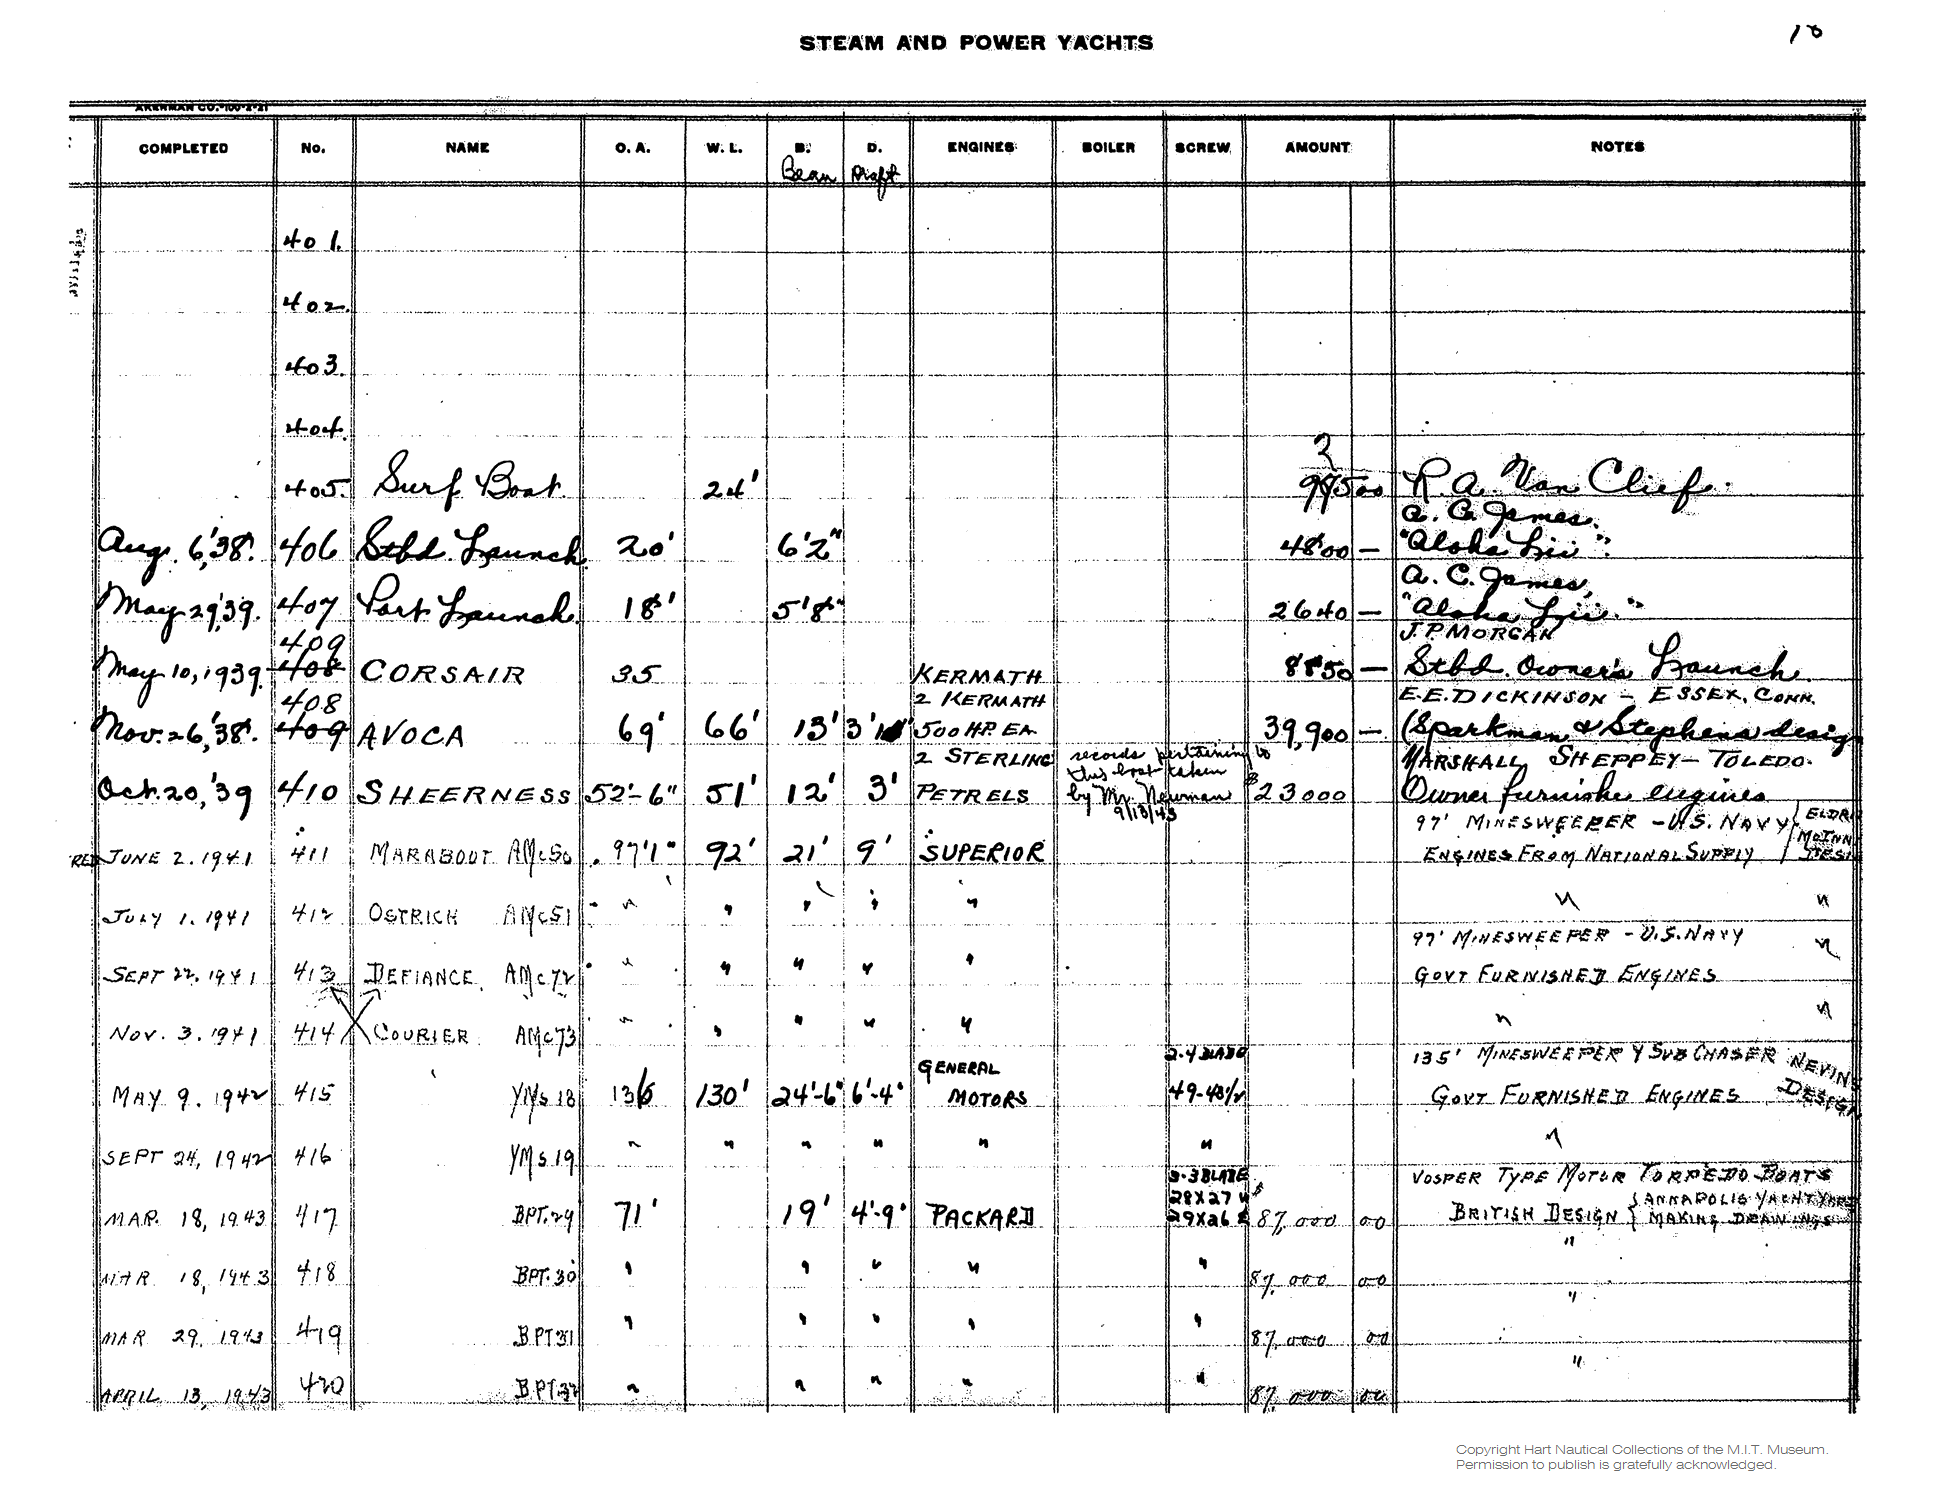 18
STEAM AND POWER YACHTS
AKERMAN CO.-100-2-21
COMPLETED No. NAME O. A. W. L. B. D. ENGINES BOILER SCREW AMOUNT NOTES
Beam Draft
401.
402.
403.
404.
405. Surf Boat 24' 975 00 R. A. Van Clief.
A. C. James.
Aug. 6,'38. 406 Stbd. Launch 20' 6'2" 4800 — "Aloha Lii".
A. C. James,
May 29,'39. 407 Port Launch. 18' 5'8" 2640 — "Aloha Lii."
409 J.P. MORGAN
May 10, 1939. 408 CORSAIR 35 KERMATH 8850 — Stbd. Owner's Launch.
408 2 KERMATH E.E. DICKINSON – ESSEX, CONN.
Nov. 26,'38. 409 AVOCA 69' 66' 13' 500 H.P. EA 39,900 — (Sparkman & Stephens desig
2 STERLING records pertaining to MARSHALL SHEPPEY – TOLEDO.
this boat taken
Oct. 20,'39 410 SHEERNESS 52'-6" 51' 12' 3' PETRELS by Mr. Newman $23000 Owner furnishes engines
9/13/43
97' MINESWEEPER – U.S. NAVY { ELDR
RED JUNE 2. 1941 411 MARABOUT AMc50 97'1" 92' 21' 9' SUPERIOR ENGINES FROM NATIONAL SUPPLY McINN DESI
JULY 1. 1941 412 OSTRICH AMc51 " " " " " " "
97' MINESWEEPER – U.S. NAVY "
SEPT 22. 1941 413 DEFIANCE AMc72 " " " " " GOVT FURNISHED ENGINES
NOV. 3. 1941 414 COURIER AMc73 " " " " " " "
GENERAL 2-4 BLADE 135' MINESWEEPER & SUB CHASER NEVINS
MAY 9. 1942 415 YMS 18 136 130' 24'-6" 6'-4" MOTORS 49-43½ GOVT FURNISHED ENGINES DESIGN
SEPT 24, 1942 416 YMS 19 " " " " " " "
3-3 BLADE VOSPER TYPE MOTOR TORPEDO BOATS
28X27 { ANNAPOLIS YACHT YARD
MAR. 18, 1943 417 BPT.29 71' 19' 4'-9" PACKARD 29X26 $87,000 00 BRITISH DESIGN { MAKING DRAWINGS
MAR 18, 1943 418 BPT.30 " " " " " 87,000 00 "
MAR 29, 1943 419 BPT31 " " " " " 87,000 00 "
APRIL 13, 1943 420 BPT32 " " " " " 87,000 00 "
Copyright Hart Nautical Collections of the M.I.T. Museum.
Permission to publish is gratefully acknowledged.